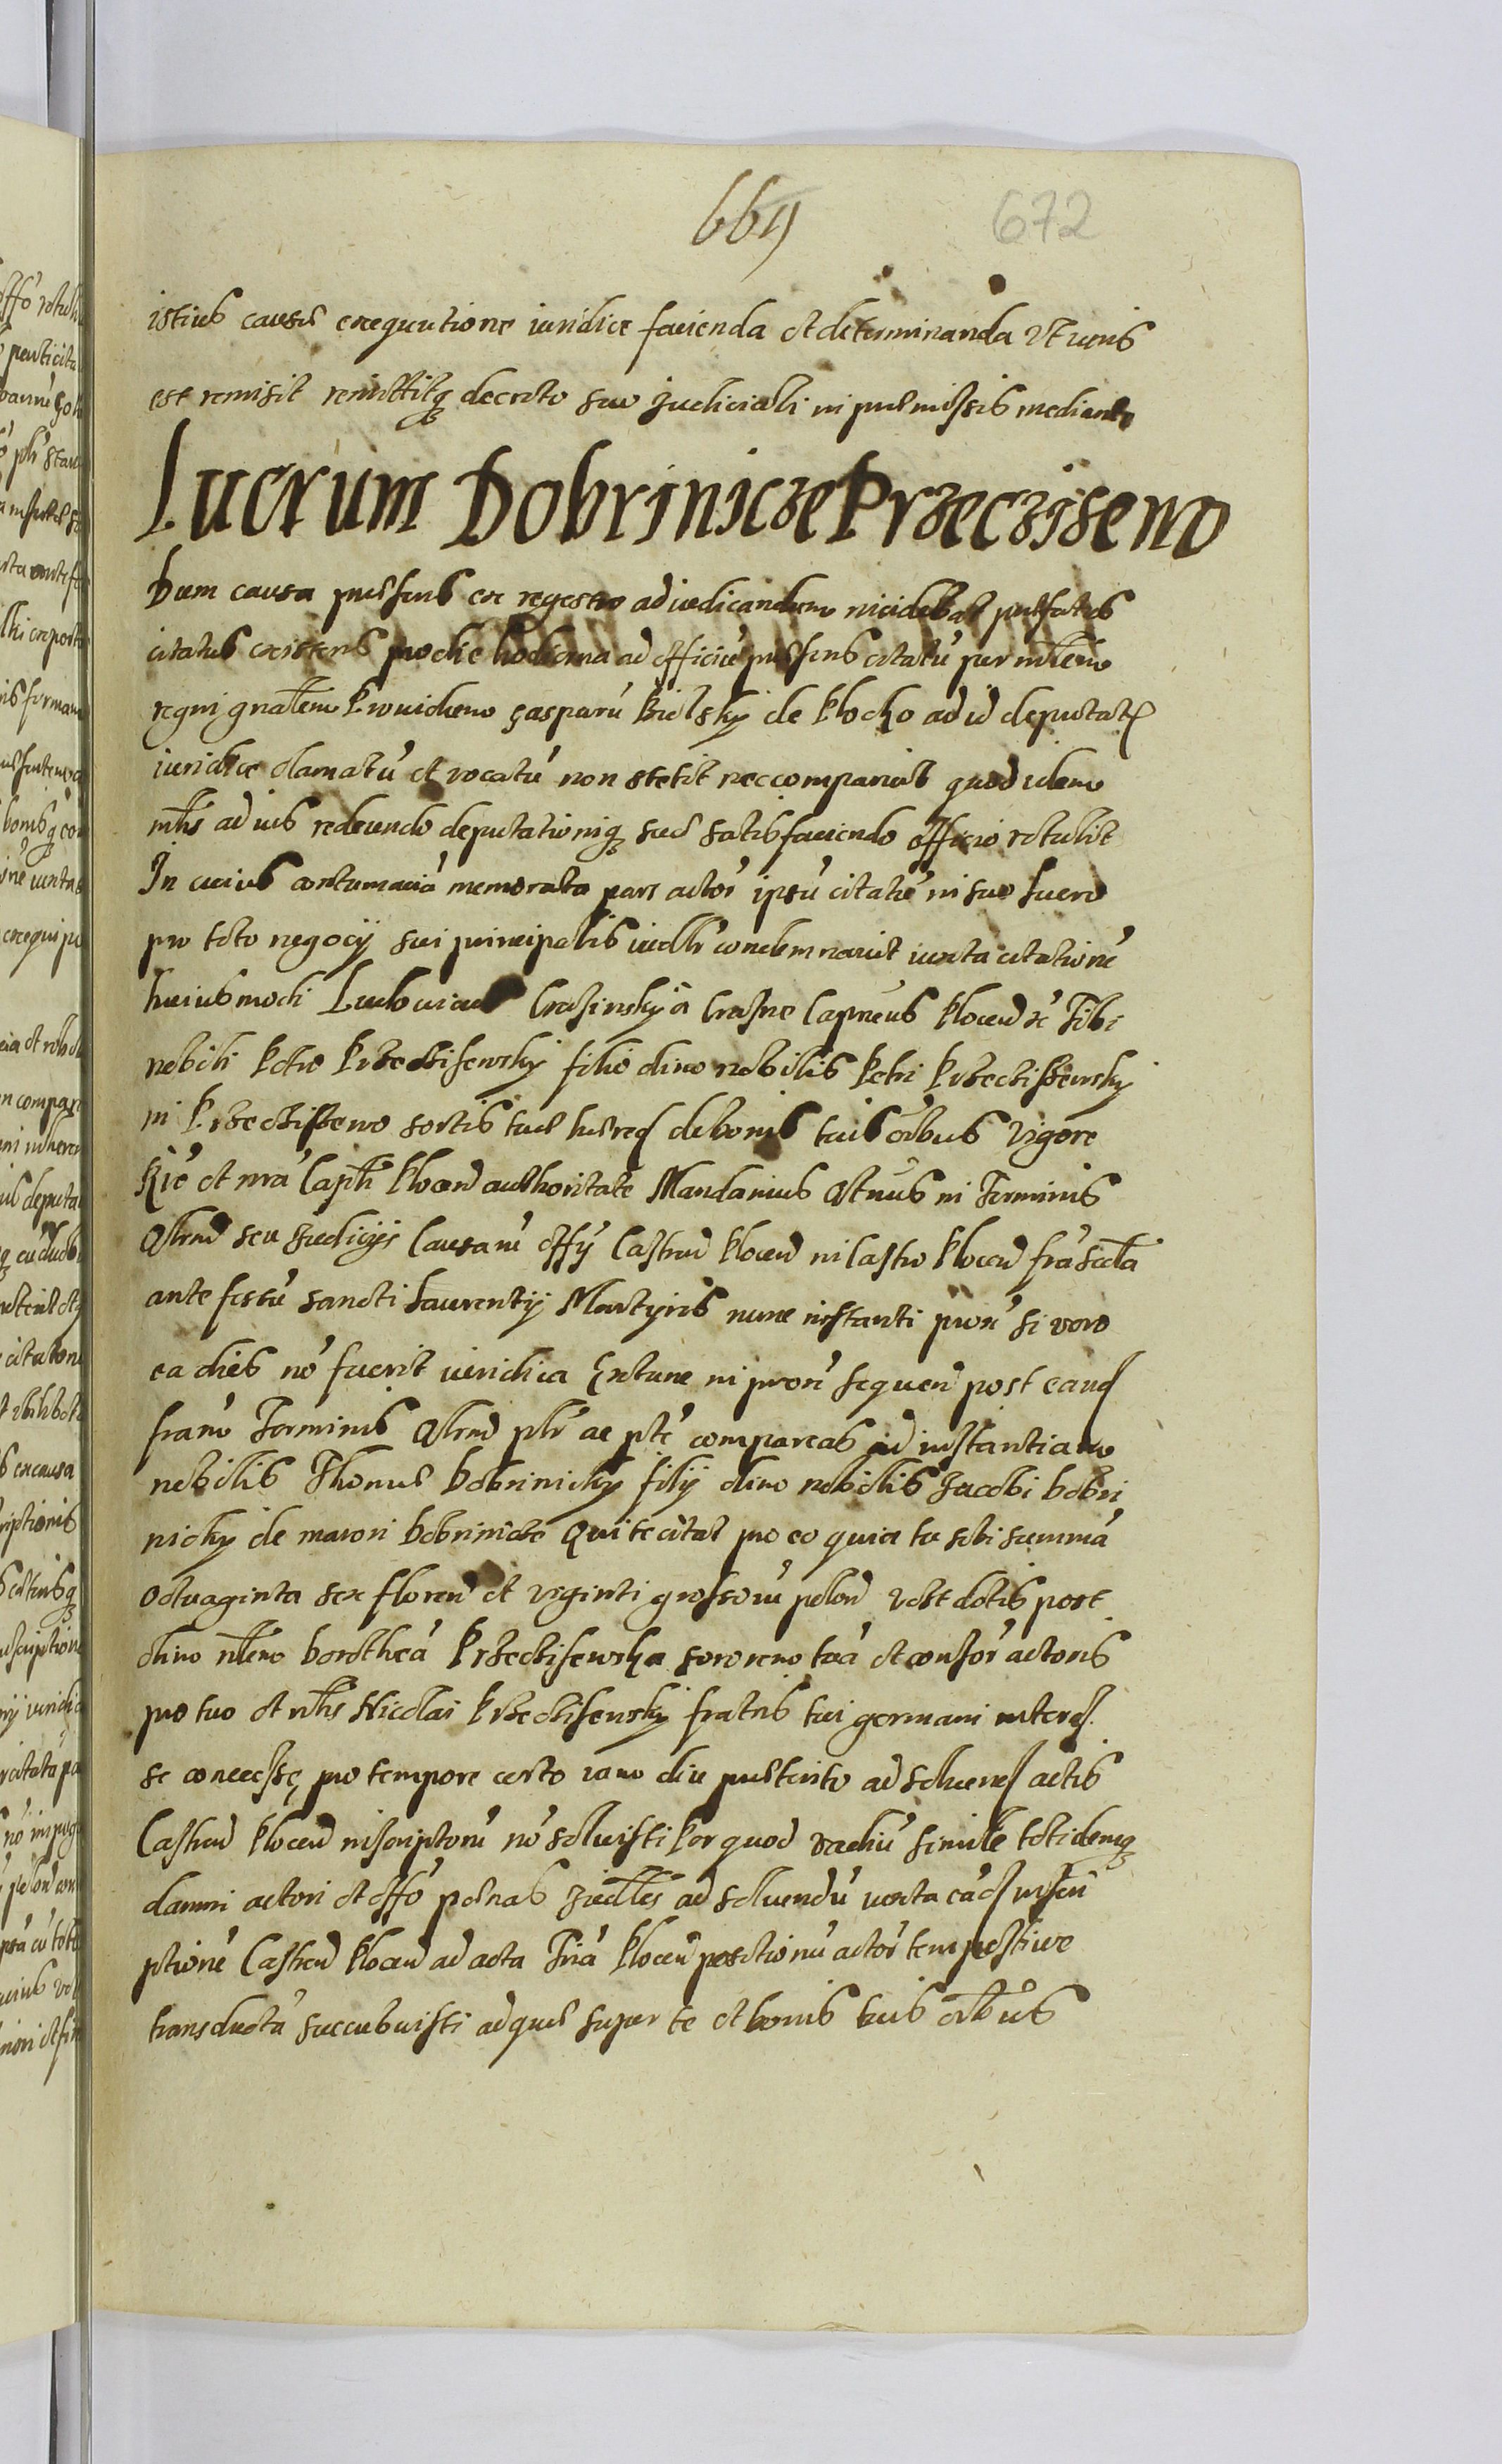 669 672
istius causæ exequutione iuridice facienda et determinanda ut iuris
est remisit remittitq decreto suo Judiciali in præmissis mediante
Lucrum Dobrinicze Przeczissewo
Dum causa præsens ex regestro ad iudicandum incidebat præfatus
citatus existens pro die hodierna ad officiu præsens citatu per mlem
regni gnalem Prouidum Casparu Bielsky de Plocko ad id deputat
iuridice clamatu et vocatu non stetit nec comparuit quod idem
mlis ad ius redeundo deputationiq suæ satisfaciendo officio retulit
In cuius contumacia memorata pars actor ipsu citatu in suo lucro
pro toto negocij sui principalis iudlr condemnauit iuxta citatione
huiusmodi Ludouicus Crasinsky a Crasne Capneus Plocen etc Tibi
nobili Petro Przeczisewsky filio olim nobilis Petri Przeczissewsky
in Przeczissewo sortis tuæ hæred de bonis tuis oibus vigore
Rie et nra Capli Plocen authoritate Mandamus Qtnus in Terminis
Qlrnd seu Judicijs Causaru offij Castren Plocen in Castro Plocen fra scda
ante festu sancti Laurentij Martyris nunc instanti prox si vero
ea dies no fuerit iuridica Extunc in prox sequen post eand
fram Terminis Qlrnd plr ac pte compareas ad instantiam
nobilis Thomæ Dobrinicky filij olim nobilis Jacobi Dobri
nicky de maiori Dobrinicze Qui te citat pro eo quia tu sibi summa
octuaginta sex floren et viginti grossoru polon dotis post
olim nlem Dorothea Przeczisewska sororem tua et consor actoris
pro tuo et nlis Nicolai Przeczisewsky fratris tui germani interes.
se concess pro tempore certo iam diu præterito ad soluend actis
Castren Plocen inscriptoru no soluisti Per quod vadiu simile totidemq
damni actori et offo pænas Judles ad soluendu iuxta ead inscri
ptione Castren Plocen ad acta Tria Plocen actor tempestiue
transducta succubuisti ad quæ super te et bonis tuis oibus